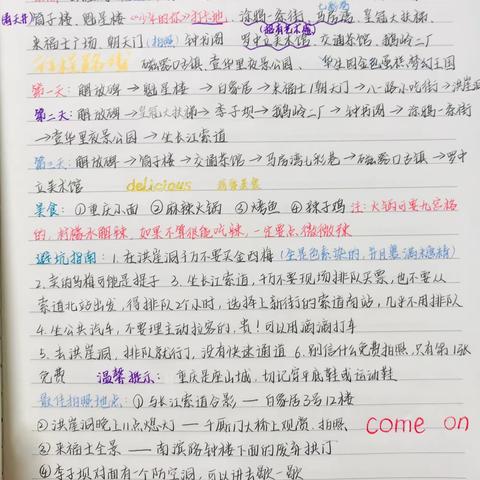 (南天井) 筒子楼、魁星楼《少年的你》打卡地、涂鸦一条街、马房湾、皇冠大扶梯、
来福士广场、朝天门(拍照) 钟书阁 罗中立美术馆、交通茶馆、鹅岭二厂
行程路线 磁器口古镇、壹华里夜景公园、
第一天:解放碑→魁星楼→白象居→来福士/朝天门→八一路小吃街→洪崖洞
第二天:解放碑→皇冠大扶梯→李子坝→鹅岭二厂→钟书阁→涂鸦一条街
→壹华里夜景公园→坐长江索道
第三天:解放碑→筒子楼→交通茶馆→马房湾七彩巷→磁器口古镇→罗中
立美术馆 delicious 我爱美食
美食:①重庆小面 ②麻辣火锅 ③烤鱼 ④辣子鸡 注:火锅可要九宫格
的,料碟水脆辣,如果不算很能吃辣,一定要点微微辣
避坑指南:1.在洪崖洞千万不要买全网梅(全是色素染的,并且裹满糖精)
2.卖的乌梅可能是提子 3.坐长江索道,千万不要现场排队买票,也不要从
索道北站出发,得排队2个小时,选择上新街的索道南站,几乎不用排队
4.坐公共汽车,不要理主动拉客的,贵!可以用滴滴打车
5.去洪崖洞,排队就行了,没有快速通道 6.别信什么免费拍照,只有第1张
免费 温馨提示:重庆是座山城,切记穿平底鞋或运动鞋
最佳拍照地点:①与长江索道合影——白象居3号12楼
②洪崖洞晚上11点熄灯——千厮门大桥上观赏、拍照 come on
③来福士全景——南滨路钟楼下面的废弃拱门
④李子坝对面有一个防空洞,可以进去歇一歇